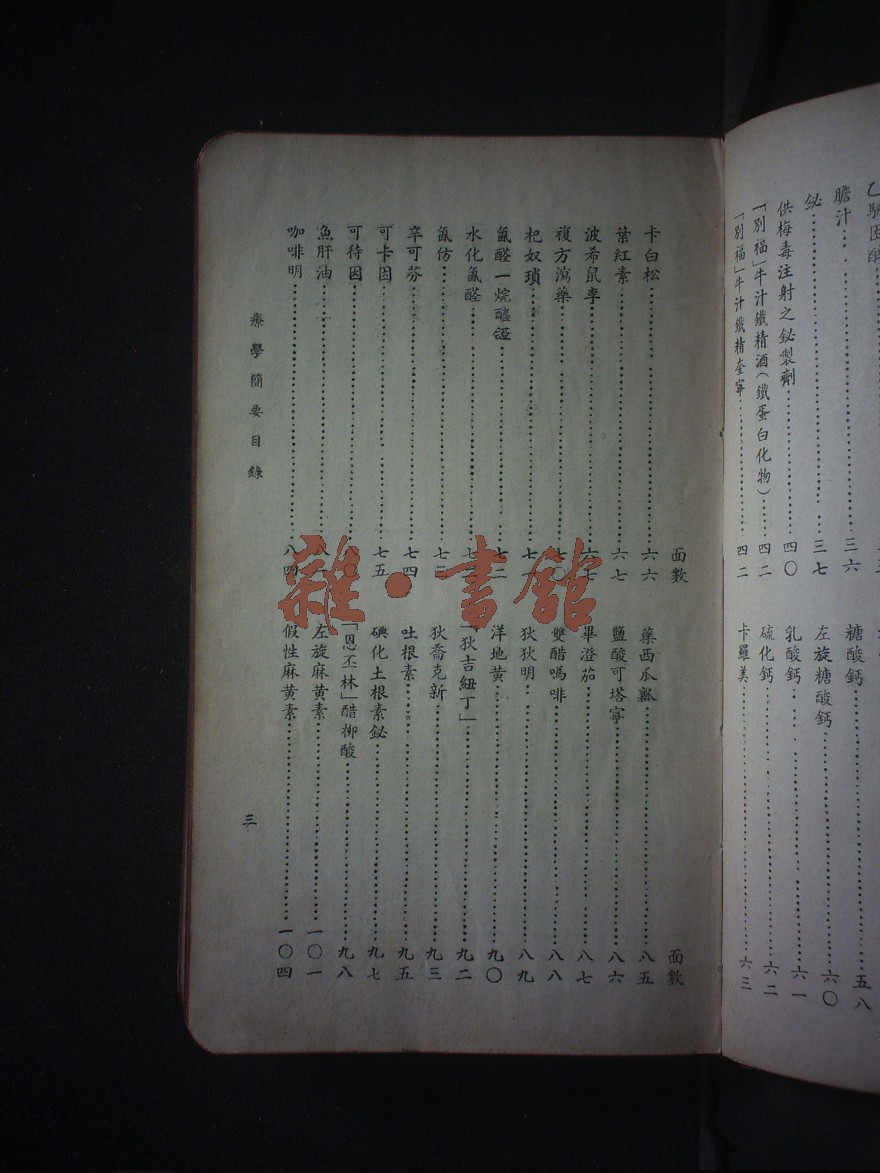 膽汁 三六
鉍 三七
供梅毒注射之鉍製劑 四〇
「別福」牛汁鐵精酒(鐵蛋白化物) 四二
「別福」牛汁鐵精奎寧 四二
糖酸鈣 五八
左旋糖酸鈣 六〇
乳酸鈣 六一
硫化鈣 六二
卡羅美 六三
面數
卡白松 六六
葉紅素 六七
波希鼠李 六七
複方瀉藥 七〇
杞奴瑣 七
氯醛一烷醯 七二
水化氯醛 七
氯仿 七三
辛可芬 七四
可卡因 七五
可待因
魚肝油 八
咖啡明 八四
面數
藥西瓜瓤 八五
鹽酸可塔寧 八六
畢澄茄 八七
雙醋嗎啡 八八
狄狄明 八九
洋地黃 九〇
「狄吉紐丁」 九二
狄喬克新 九三
吐根素 九五
碘化土根素鉍 九七
「恩丕林」醋柳酸 九八
左旋麻黃素 一〇一
假性麻黃素 一〇四
療學簡要目錄
三
雜·書館